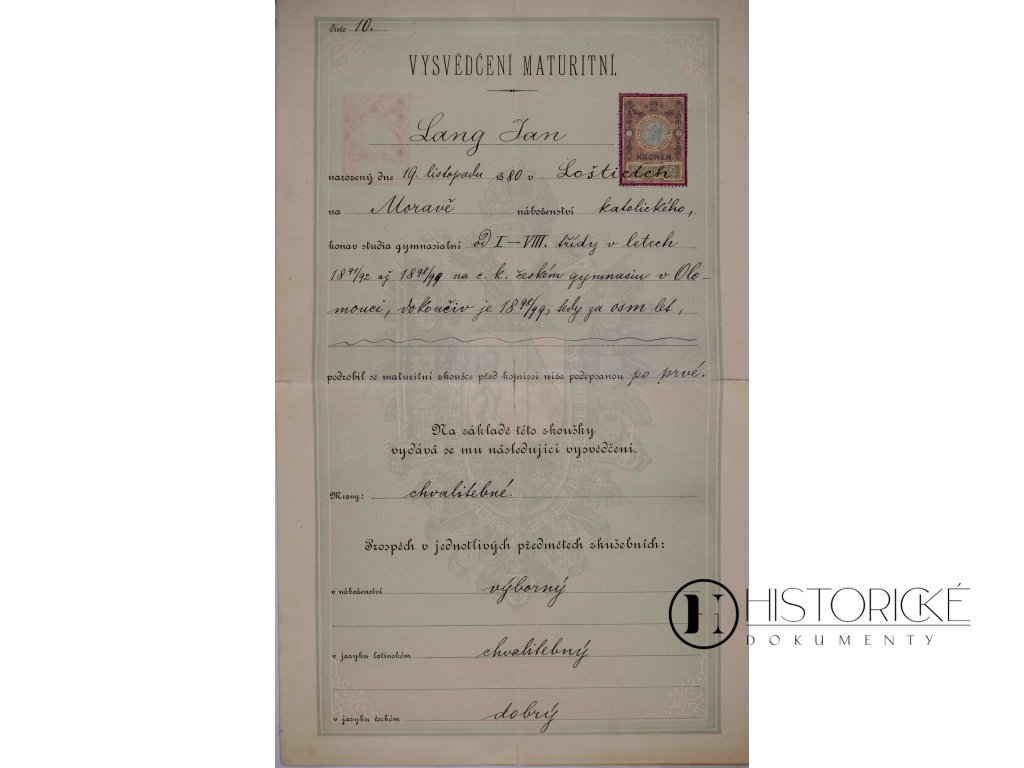 Číslo 10.
VYSVĚDČENÍ MATURITNÍ.
2
KRONEN
Lang Jan
narozený dne 19. listopadu 1880 v Lošticích
na Moravě náboženství katolického,
konav studia gymnasialní od I–VIII. třídy v letech
1891/92 až 1898/99 na c. k. českém gymnasiu v Olo-
mouci, dokončiv je 1898/99, tedy za osm let,
podrobil se maturitní zkoušce před komissí níže podepsanou po prvé.
Na základě této zkoušky
vydává se mu následující vysvědčení.
Mravy: chvalitebné.
Prospěch v jednotlivých předmětech zkušebních:
v náboženství výborný
HISTORICKÉ
DOKUMENTY
v jazyku latinském chvalitebný
v jazyku řeckém dobrý